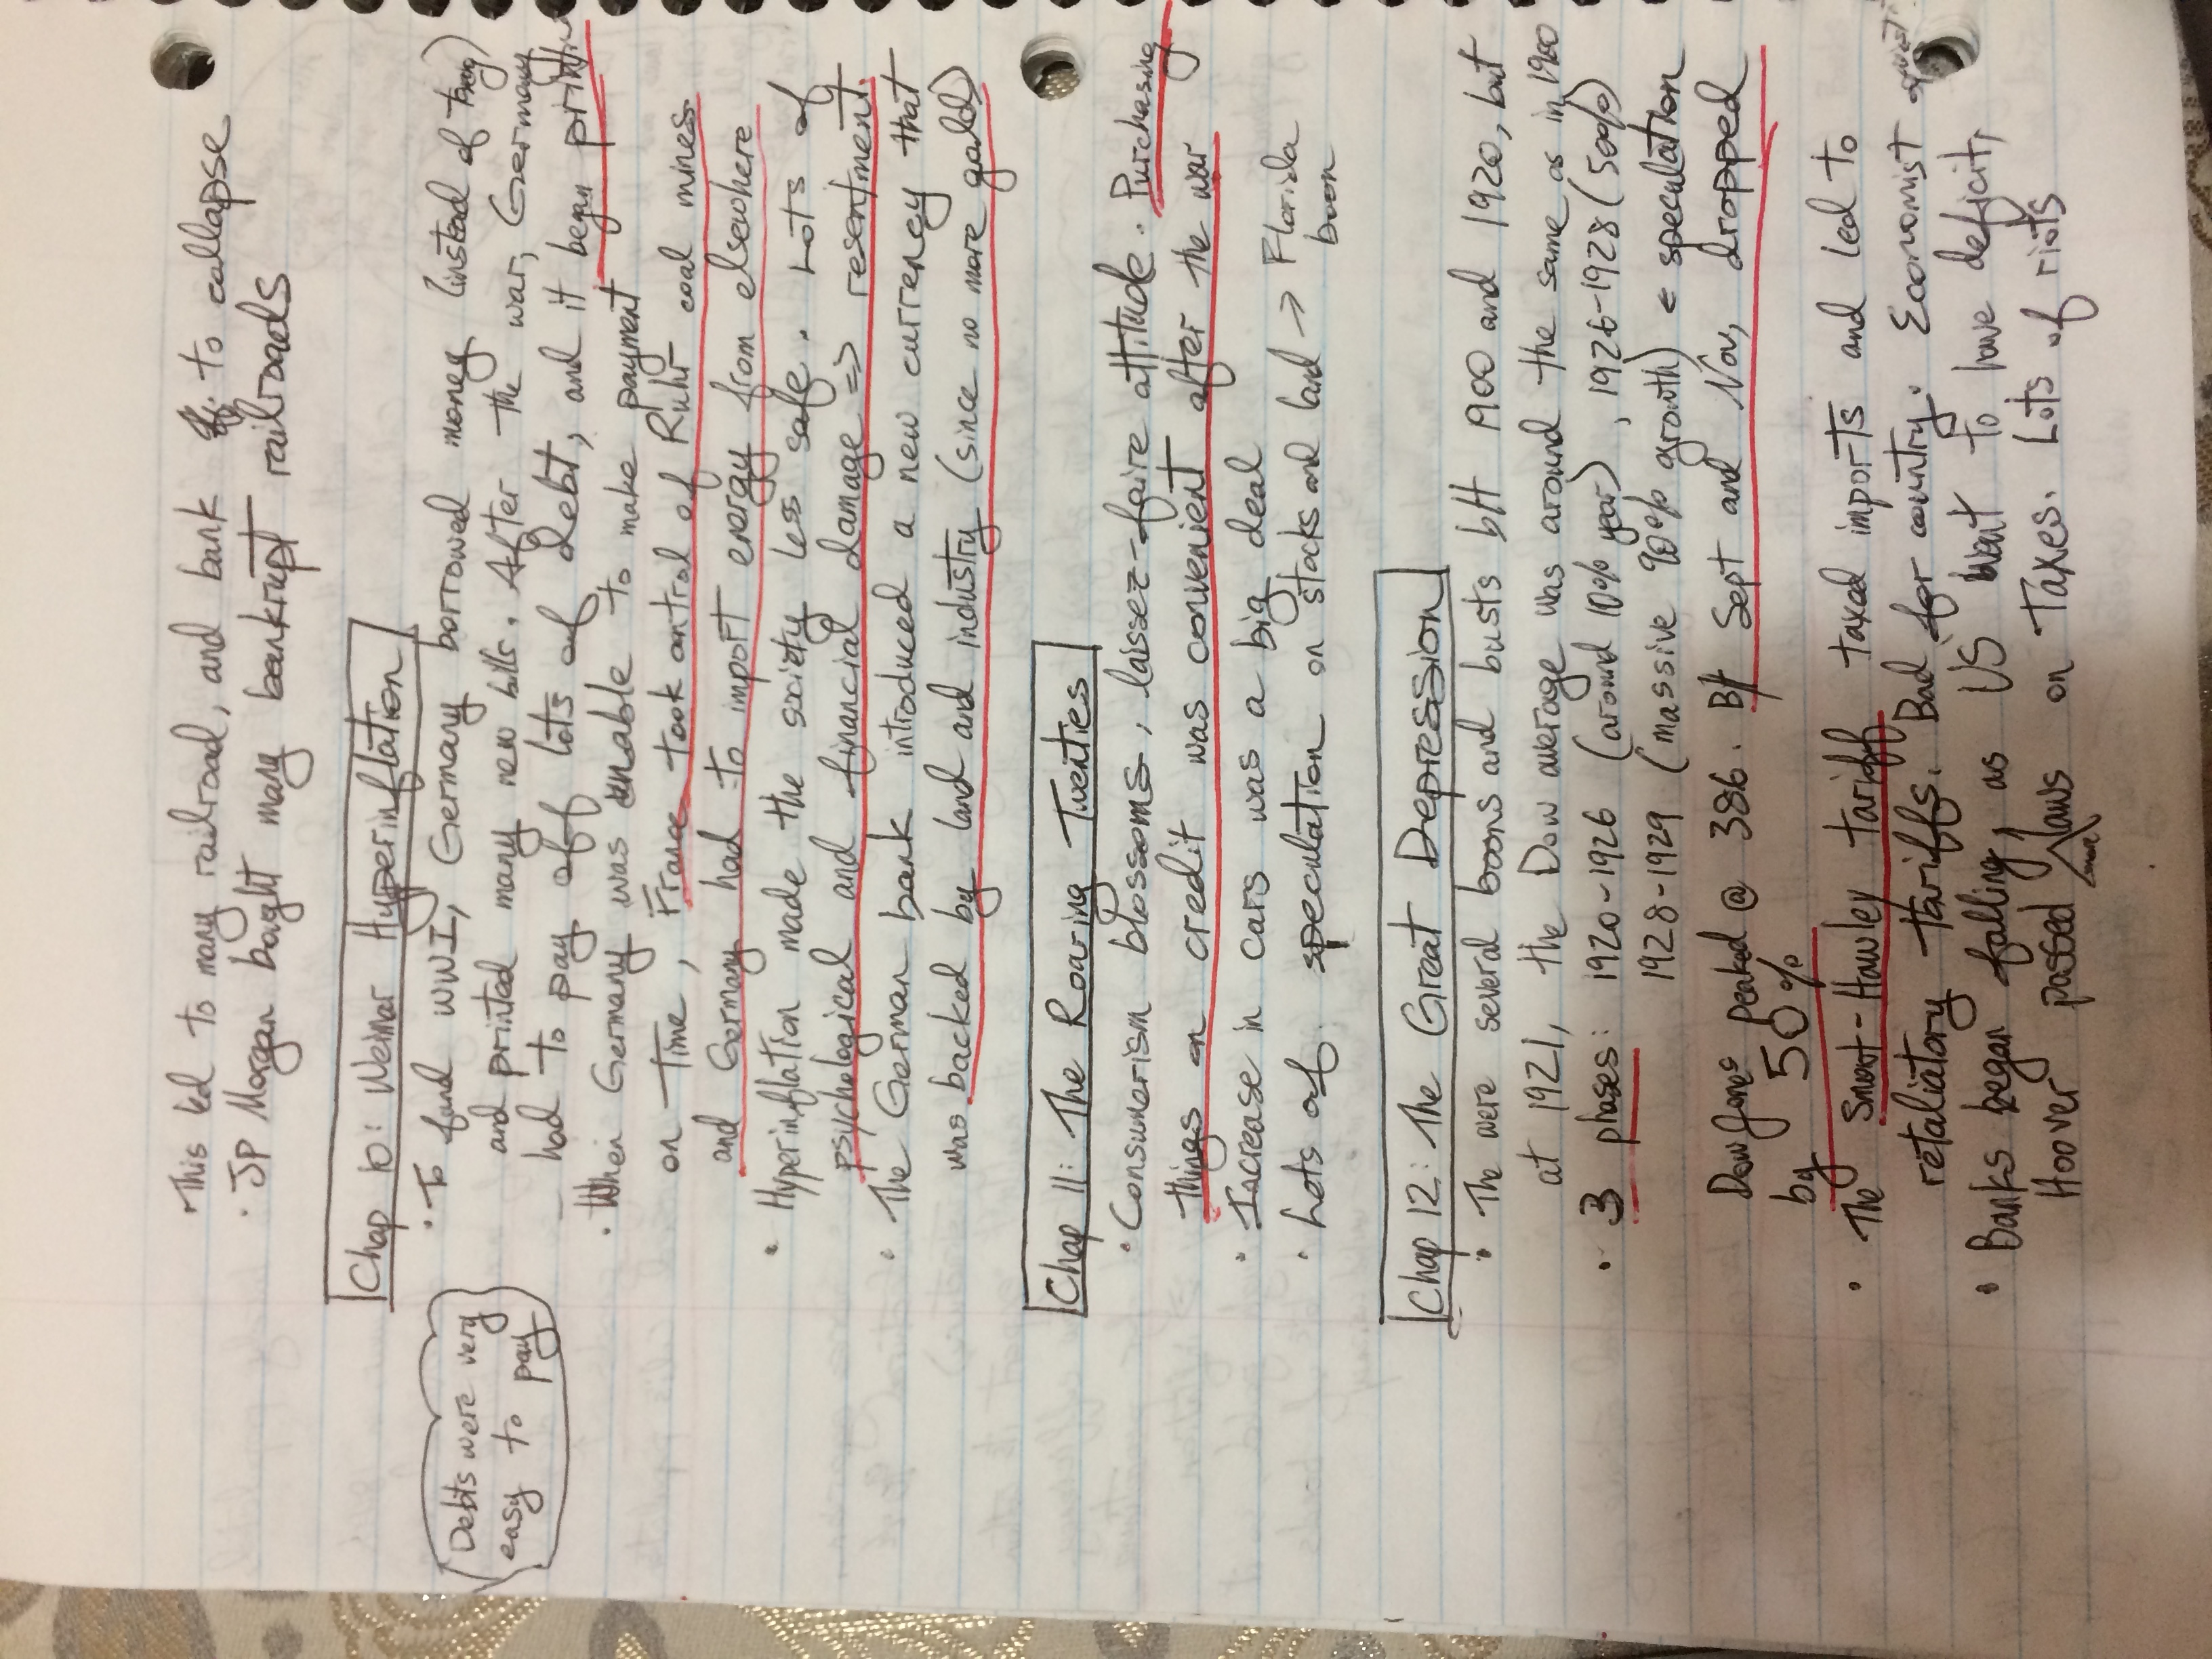 • This led to many railroad, and bank to collapse
• JP Morgan bought many bankrupt railroads
Chap 10: Weimar Hyperinflation
• To fund WWI, Germany borrowed money (instead of
Debts were very
easy to pay
and printed many new bills. After the war, Germany
had to pay off lots of debt, and it began
• When Germany was unable to make payment
on time, France took control of Ruhr coal mines
and Germany had to import energy from elsewhere
• Hyperinflation made the society less safe. Lots of
psychological and financial damage => resentment.
• The German bank introduced a new currency that
was backed by land and industry (since no more gold)
Chap 11: The Roaring Twenties
• Consumerism blossoms, laissez-faire attitude. Purchasing
things on credit was convenient after the war
• Increase in cars was a big deal
• Lots of speculation on stocks and land → Florida
boon
Chap 12: The Great Depression
• The were several boons and busts btt 1900 and 1920, but
at 1921, the Dow average was around the same as in 1900
• 3 phases: 1920-1926 (around 10% year), 1926-1928 (50%)
1928-1929 (massive 90% growth) ← speculation
Dow Jones peaked @ 386. B/t Sept and Nov, dropped
by 50%
• The Smoot-Hawley tariff taxed imports and led to
retaliatory tariffs. Bad for country. Economist against
• Banks began falling, as US want to have deficit,
Hoover passed more laws on Taxes. Lots of riots